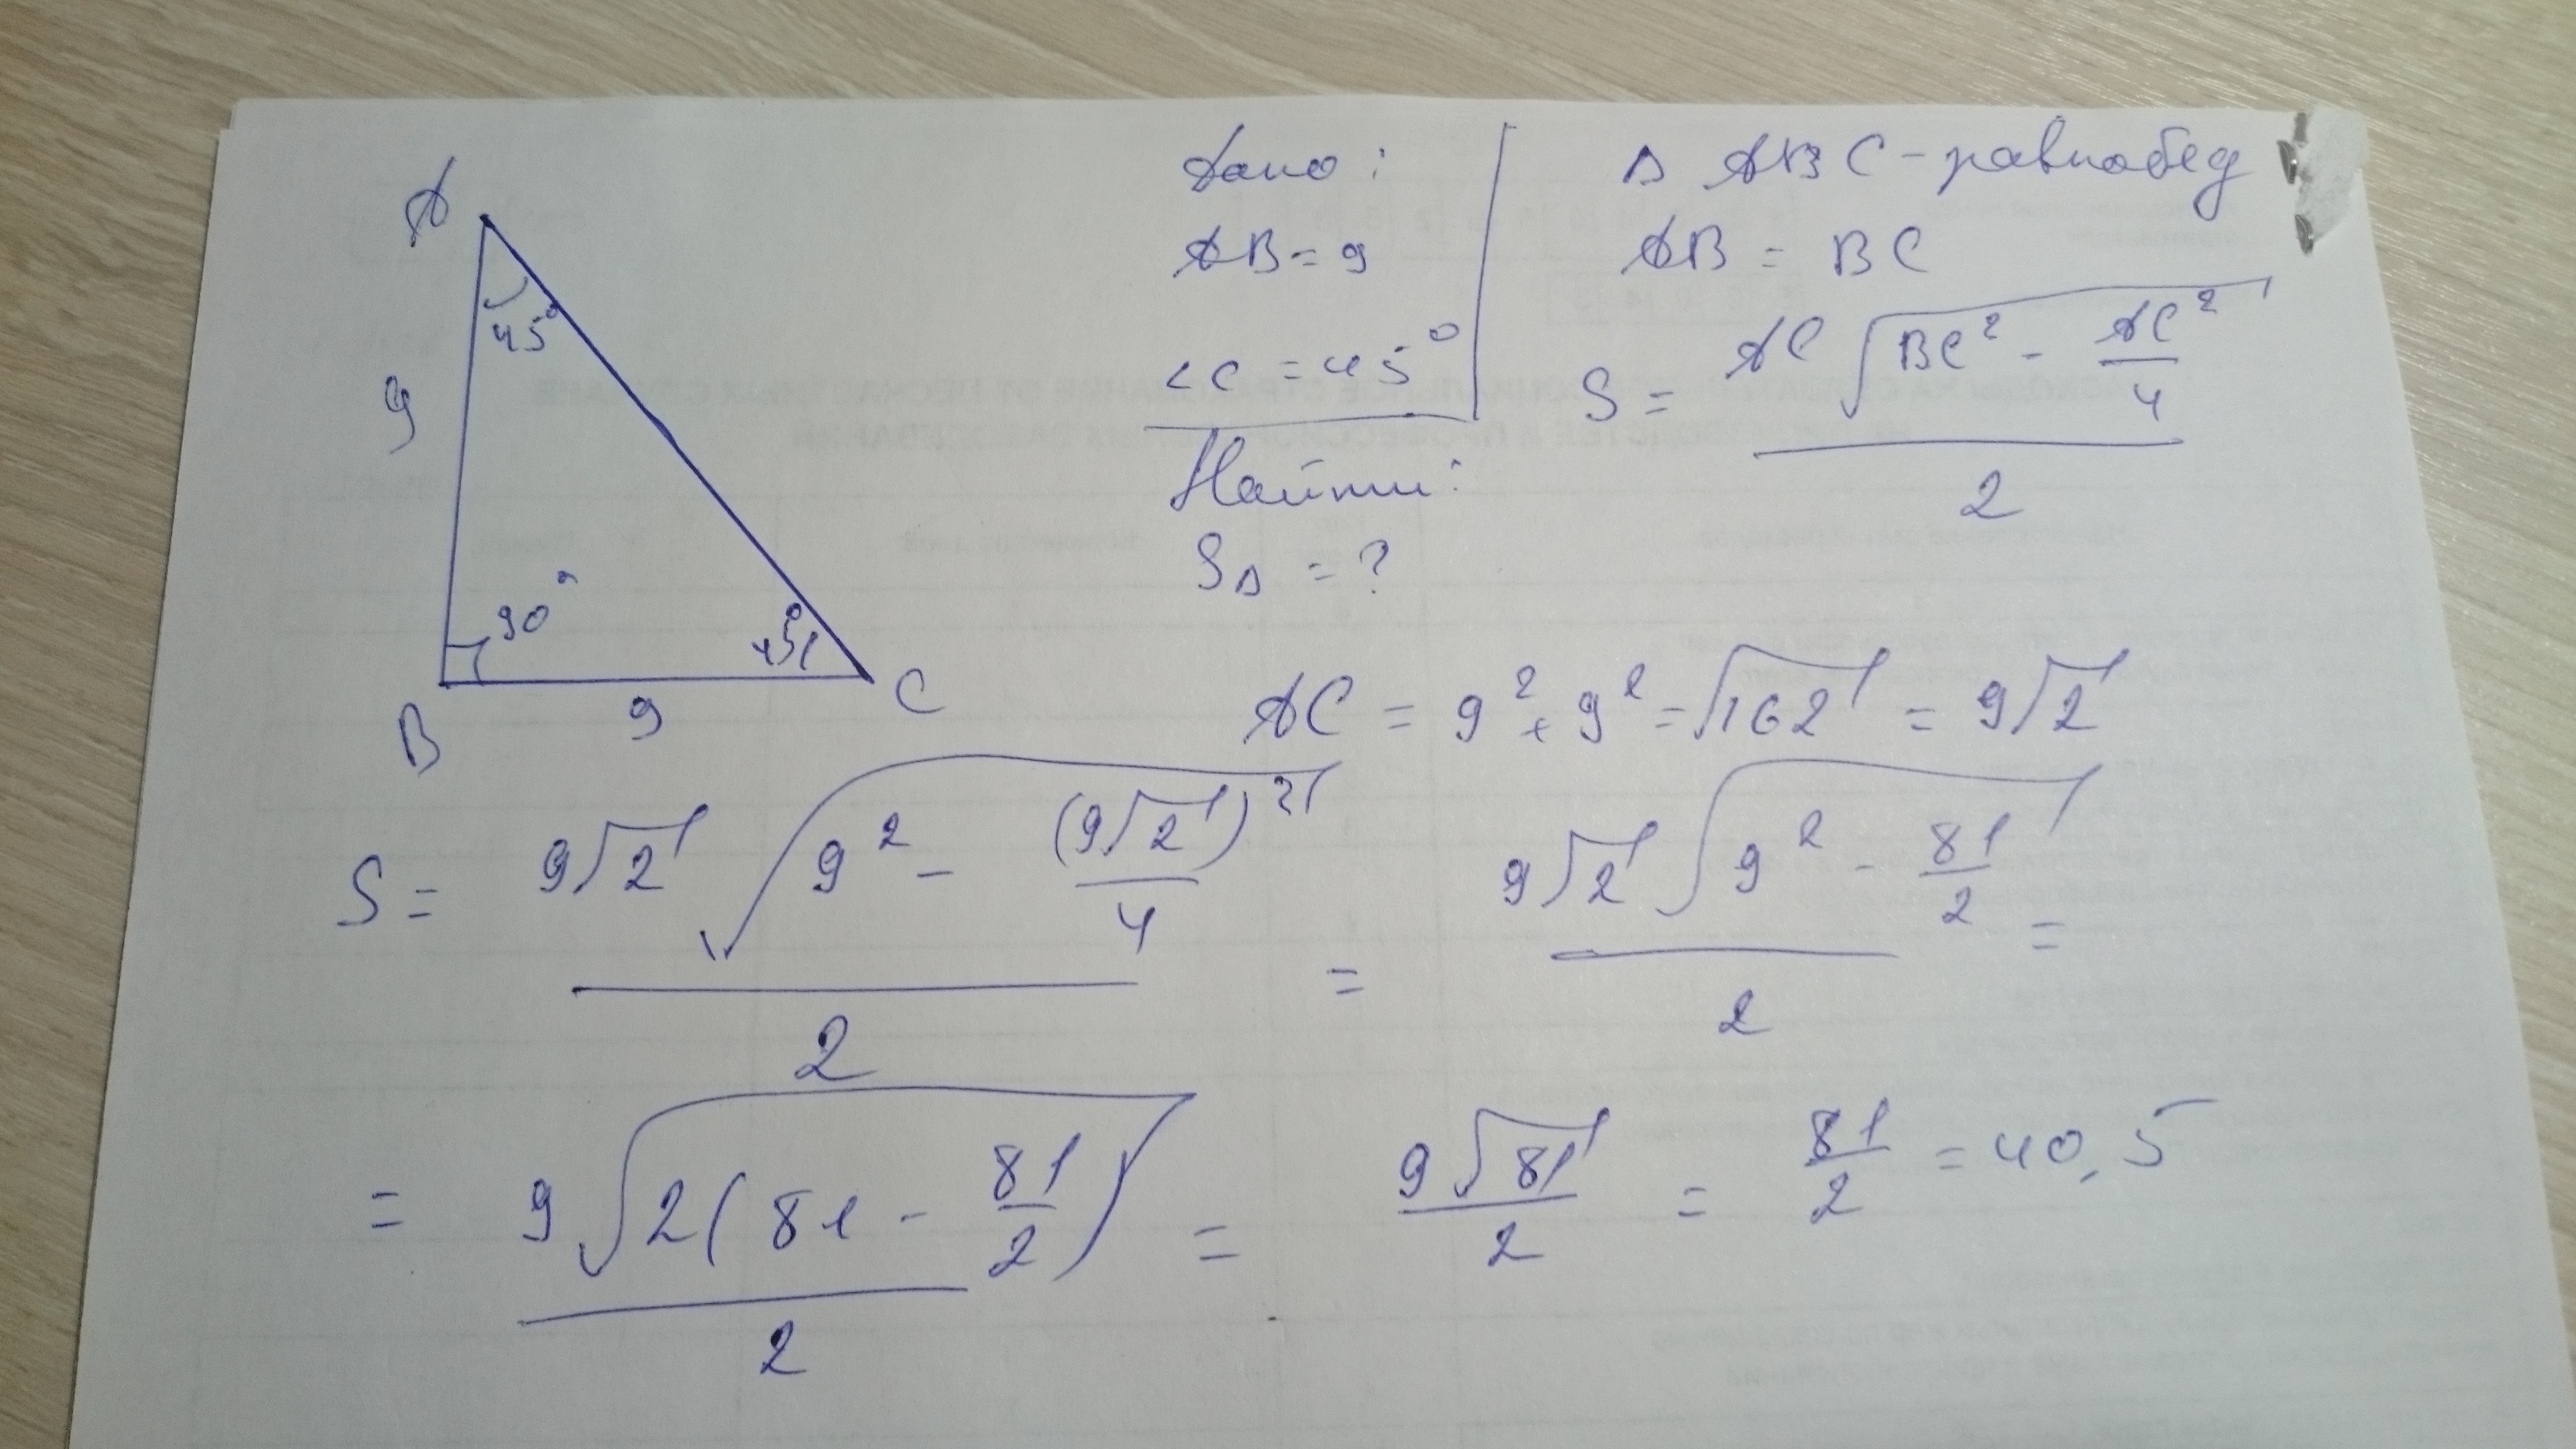 A
45°
9
90°
45°
B
9
C
Дано:
AB = 9
∠C = 45°
Найти:
S△ = ?
△ ABC - равнобед
AB = BC
S = AC √(BC² - AC²/4) / 2
AC = 9² + 9² = √162 = 9√2
S = 9√2 √(9² - (9√2)²/4) / 2 = 9√2 √(9² - 81/2) / 2 =
= 9√(2(81 - 81/2)) / 2 = 9√81 / 2 = 81/2 = 40,5